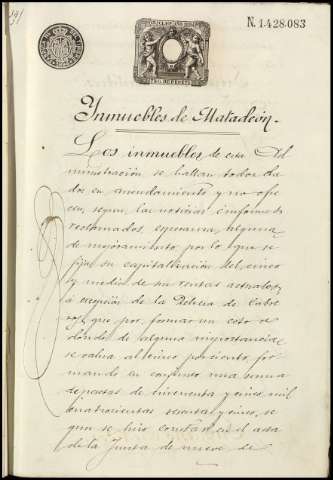 N. 1.428.083
Inmuebles de Matadeón.-
Los inmuebles de esta Ad
ministración se hallan todos da
dos en arrendamiento y no ofre
cen, segun las noticias é informes
tomados, esperanza, alguna
de mejoramiento, por lo que se
fija su capitalización del cinco
y medio de sus rentas actuales,
á excepción de la Dehesa de Cabre
que por formar un coto re
dondo de alguna importancia,
se valua al cinco por ciento, for
mando en conjunto una suma
de pesetas de cincuenta y cinco mil
cuatrocientas sesenta y cinco, se
gun se hizo constar en el acta
de la Junta de nueve de